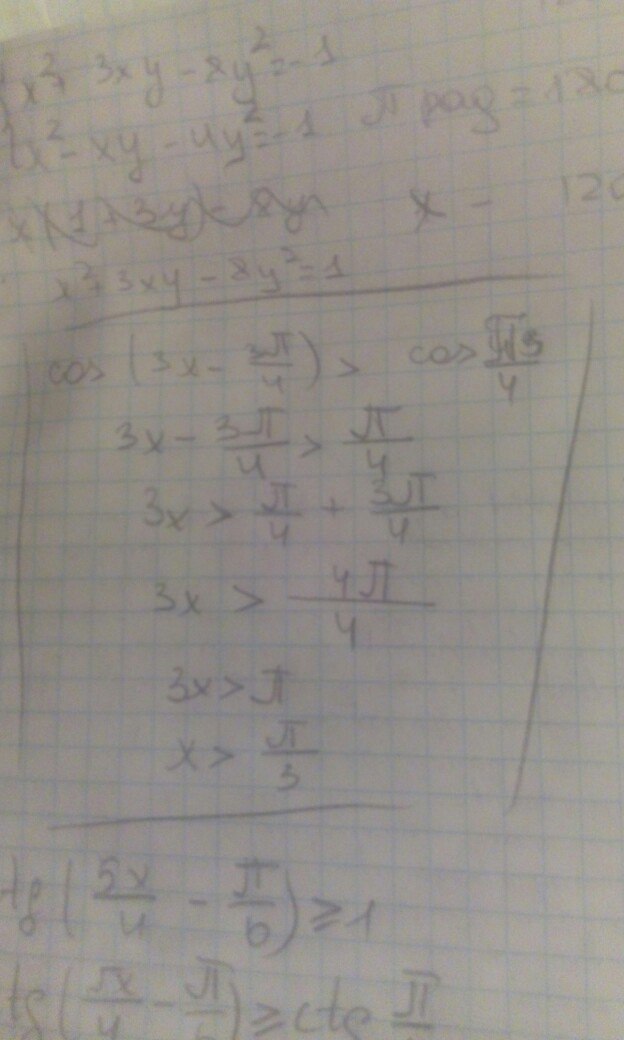 x² + 3xy - 8y² = -1
x² - xy - 4y² = -1 π рад = 180
x - 120
x² + 3xy - 8y² = 1
cos (3x - 3π/4) > cos
3x - 3π/4 > π/4
3x > π/4 + 3π/4
3x > 4π/4
3x > π
x > π/3
tg (5x/4 - π/6) ≥ 1
≥ ctg π